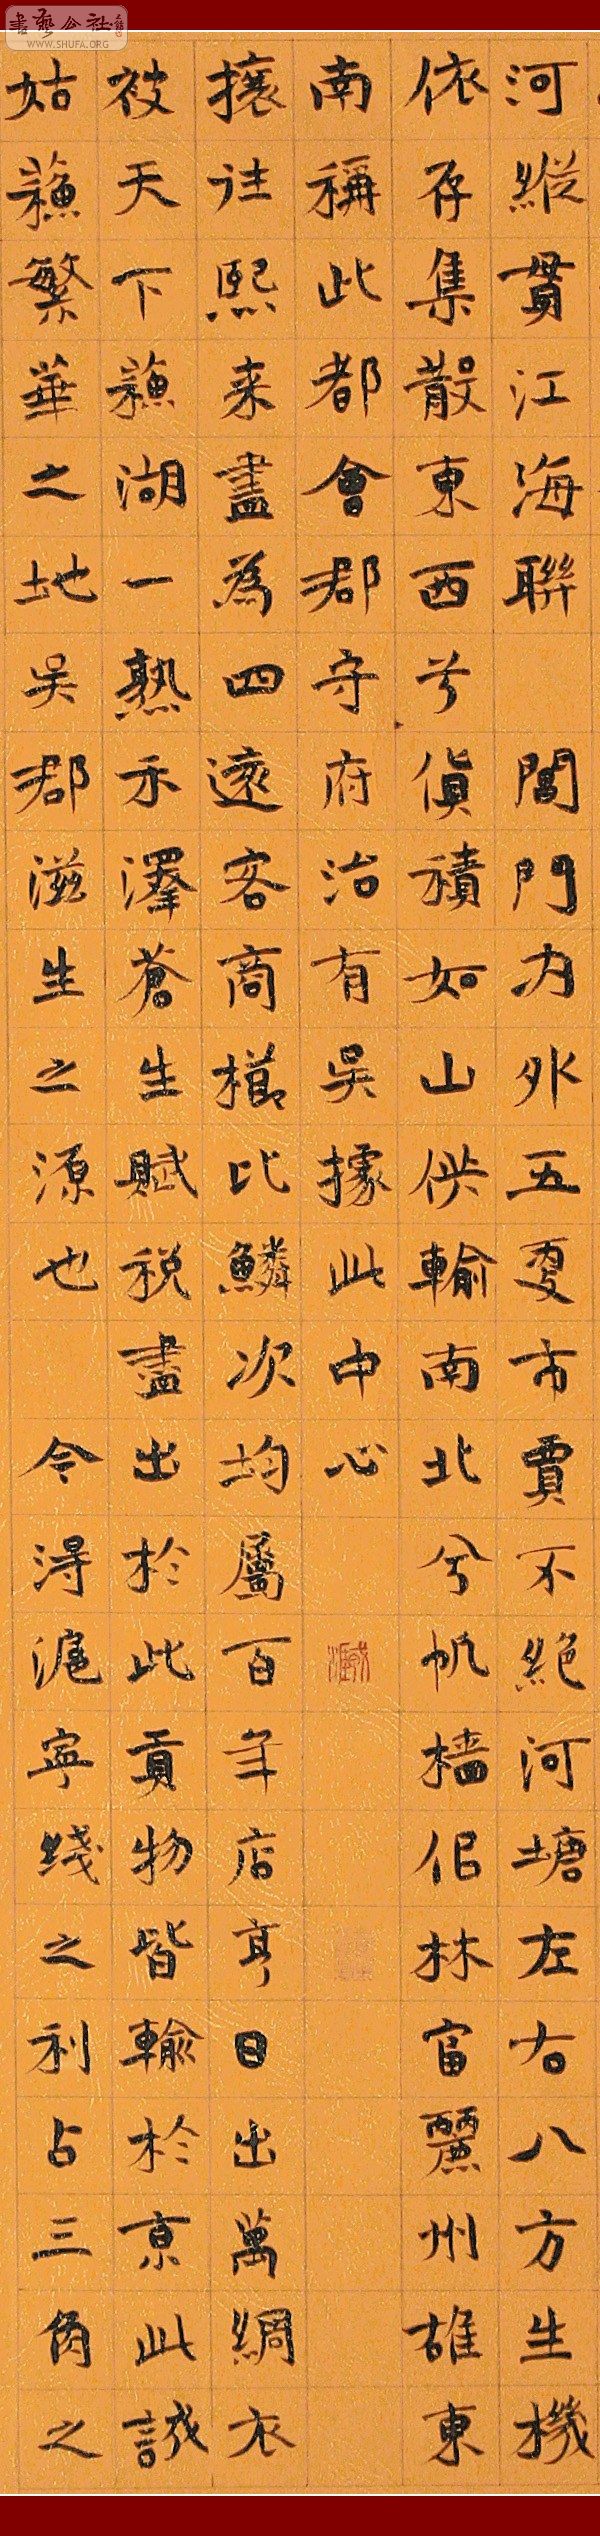 書藝公社
WWW.SHUFA.ORG
河縱貫江海聯 閶門內外五更市賈不絕河塘左右八方生機
依存集散東西兮貨積如山供輸南北兮帆檣佀林富麗州雄東
南稱此都會郡守府治有吳據此中心
攘往熙来盡為四遠客商櫛比鱗次均屬百年店亨日出萬綢衣
被天下蘇湖一熟禾澤蒼生賦税盡出於此貢物皆輸於京此誠
姑蘇繁華之地吳郡滋生之源也 今得滬寧綫之利占三角之